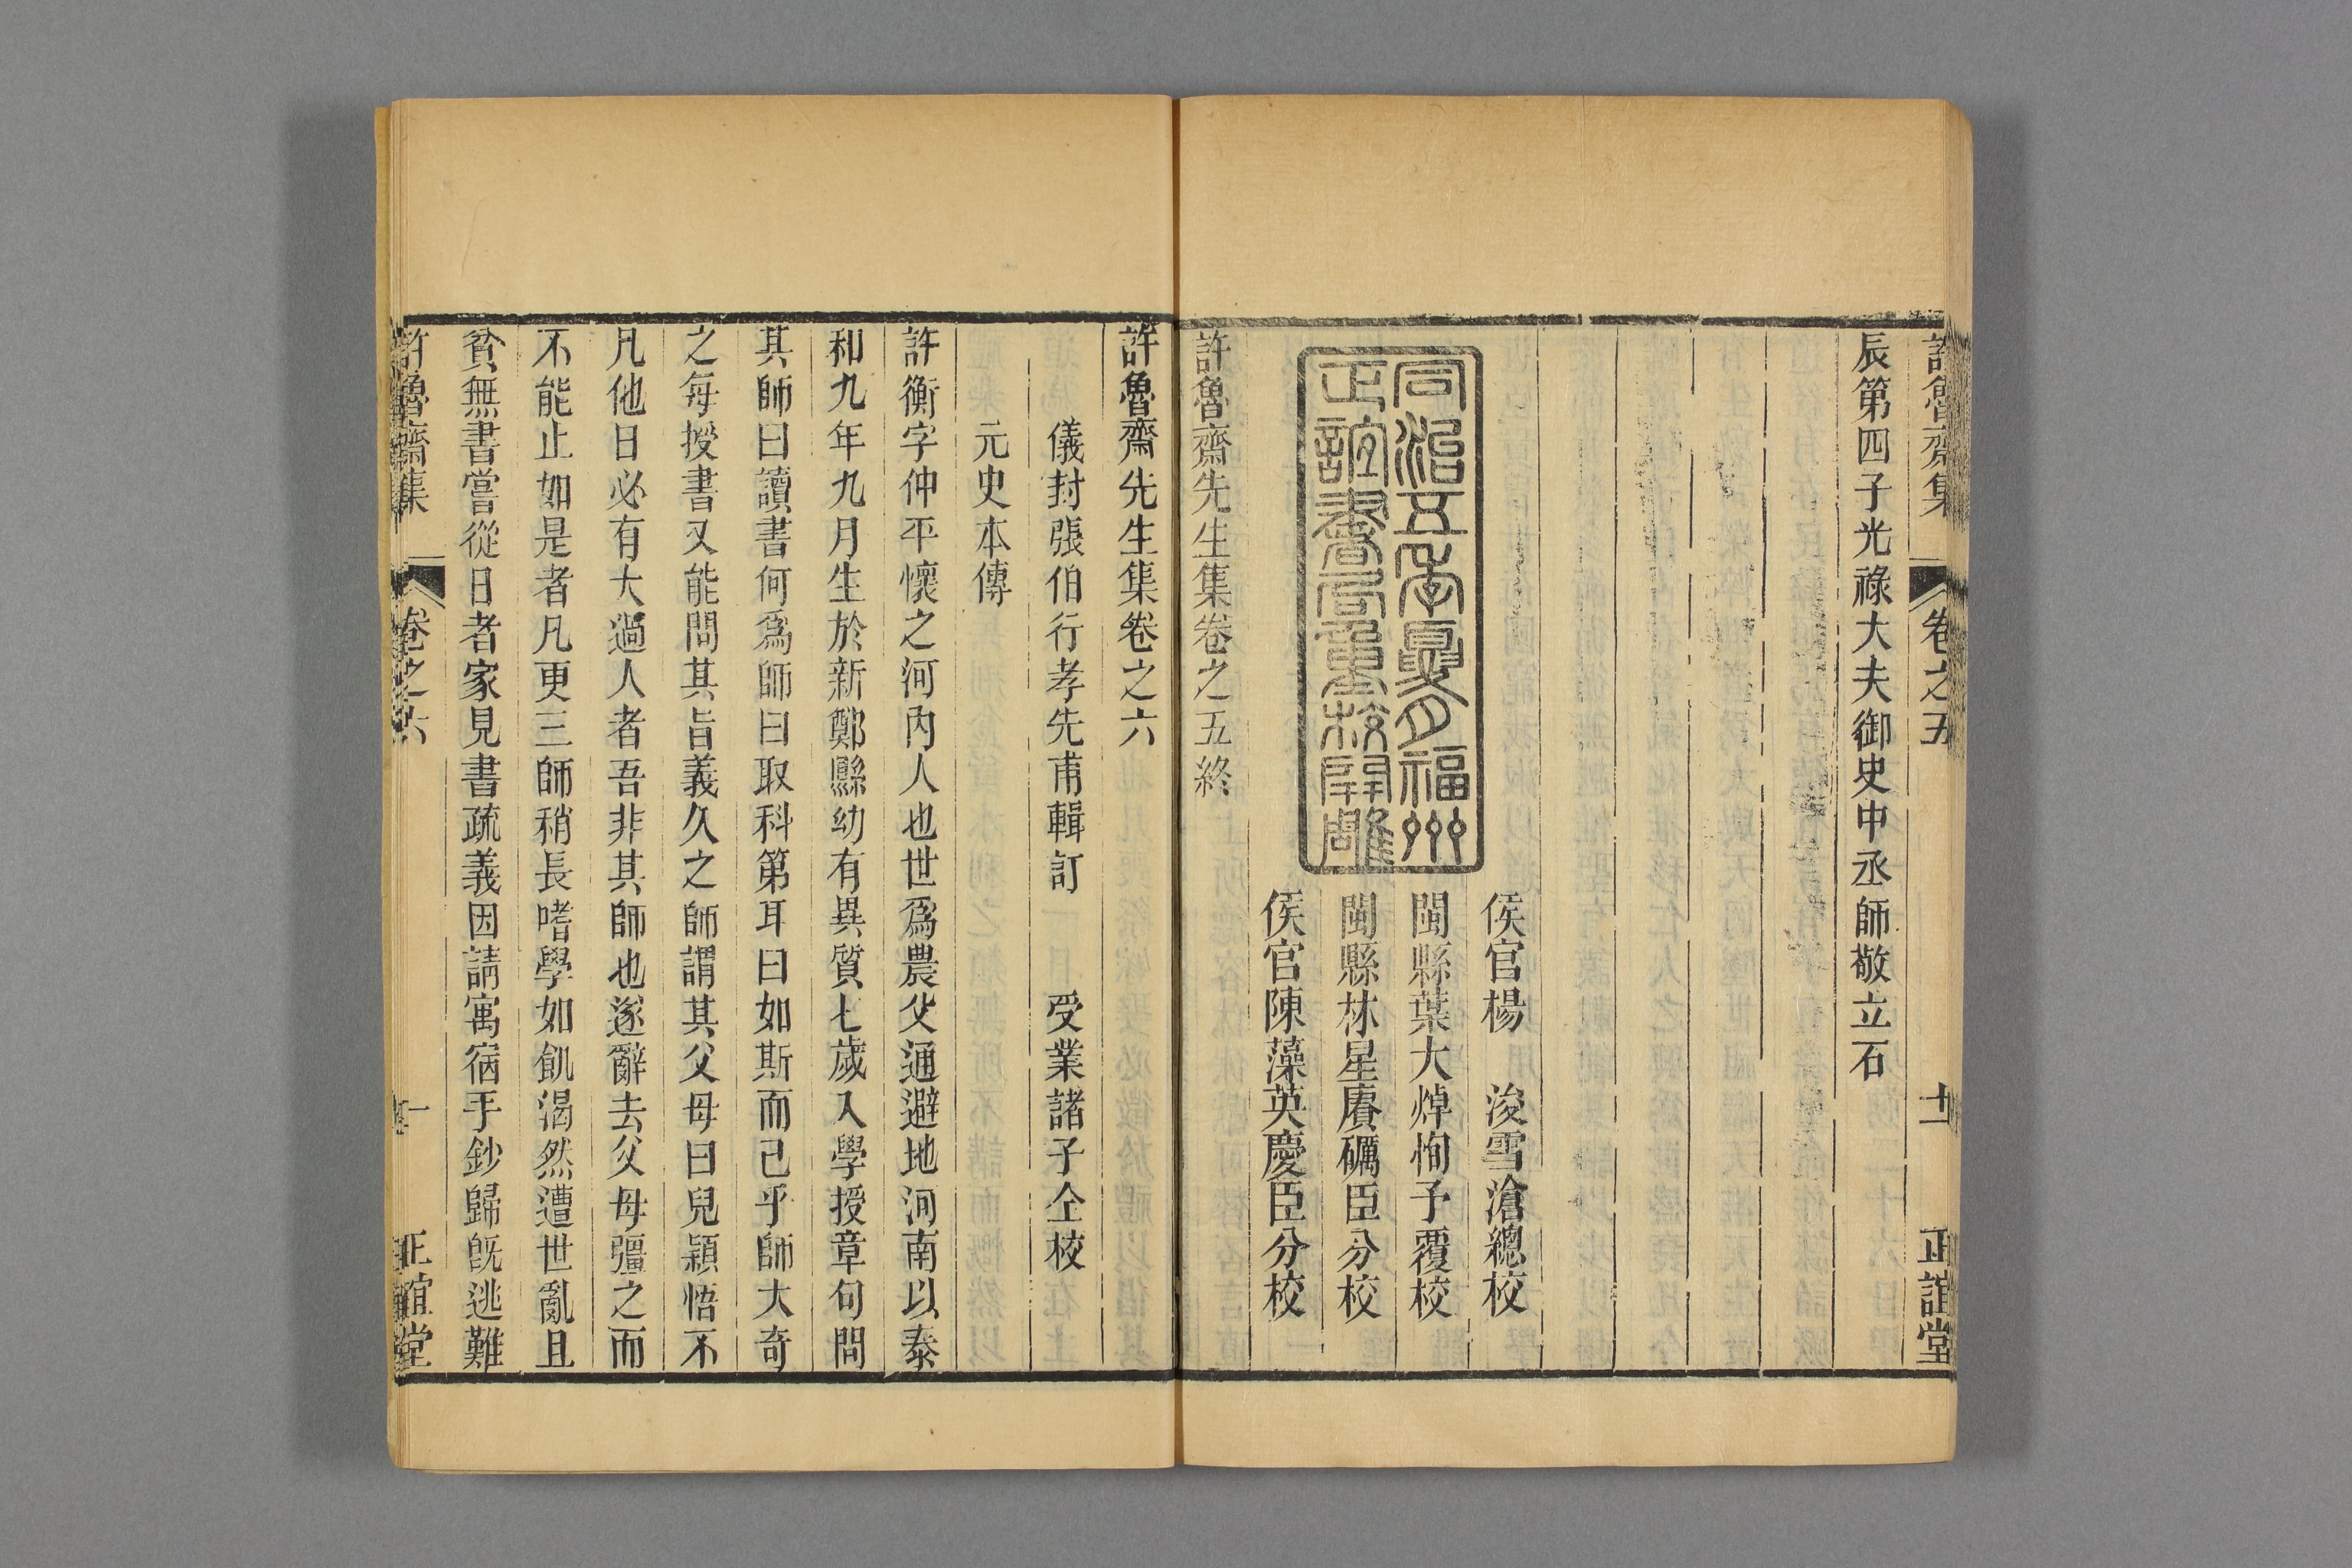 許魯齋集　卷之五　十一　正誼堂
辰第四子光祿大夫御史中丞師敬立石
侯官楊　浚雪滄總校
閩縣葉大焯恂予覆校
同治五年夏月福州
正誼書局重校開雕
閩縣林星賡礪臣分校
侯官陳藻英慶臣分校
許魯齋先生集卷之五終
許魯齋先生集卷之六
儀封張伯行孝先甫輯訂　受業諸子仝校
元史本傳
許衡字仲平懷之河內人也世爲農父通避地河南以泰
和九年九月生於新鄭縣幼有異質七歲入學授章句問
其師曰讀書何爲師曰取科第耳曰如斯而已乎師大奇
之每授書又能問其旨義久之師謂其父母曰兒穎悟不
凡他日必有大過人者吾非其師也遂辭去父母彊之而
不能止如是者凡更三師稍長嗜學如飢渴然遭世亂且
貧無書嘗從日者家見書疏義因請寓宿手鈔歸旣逃難
許魯齋集　卷之六　一　正誼堂